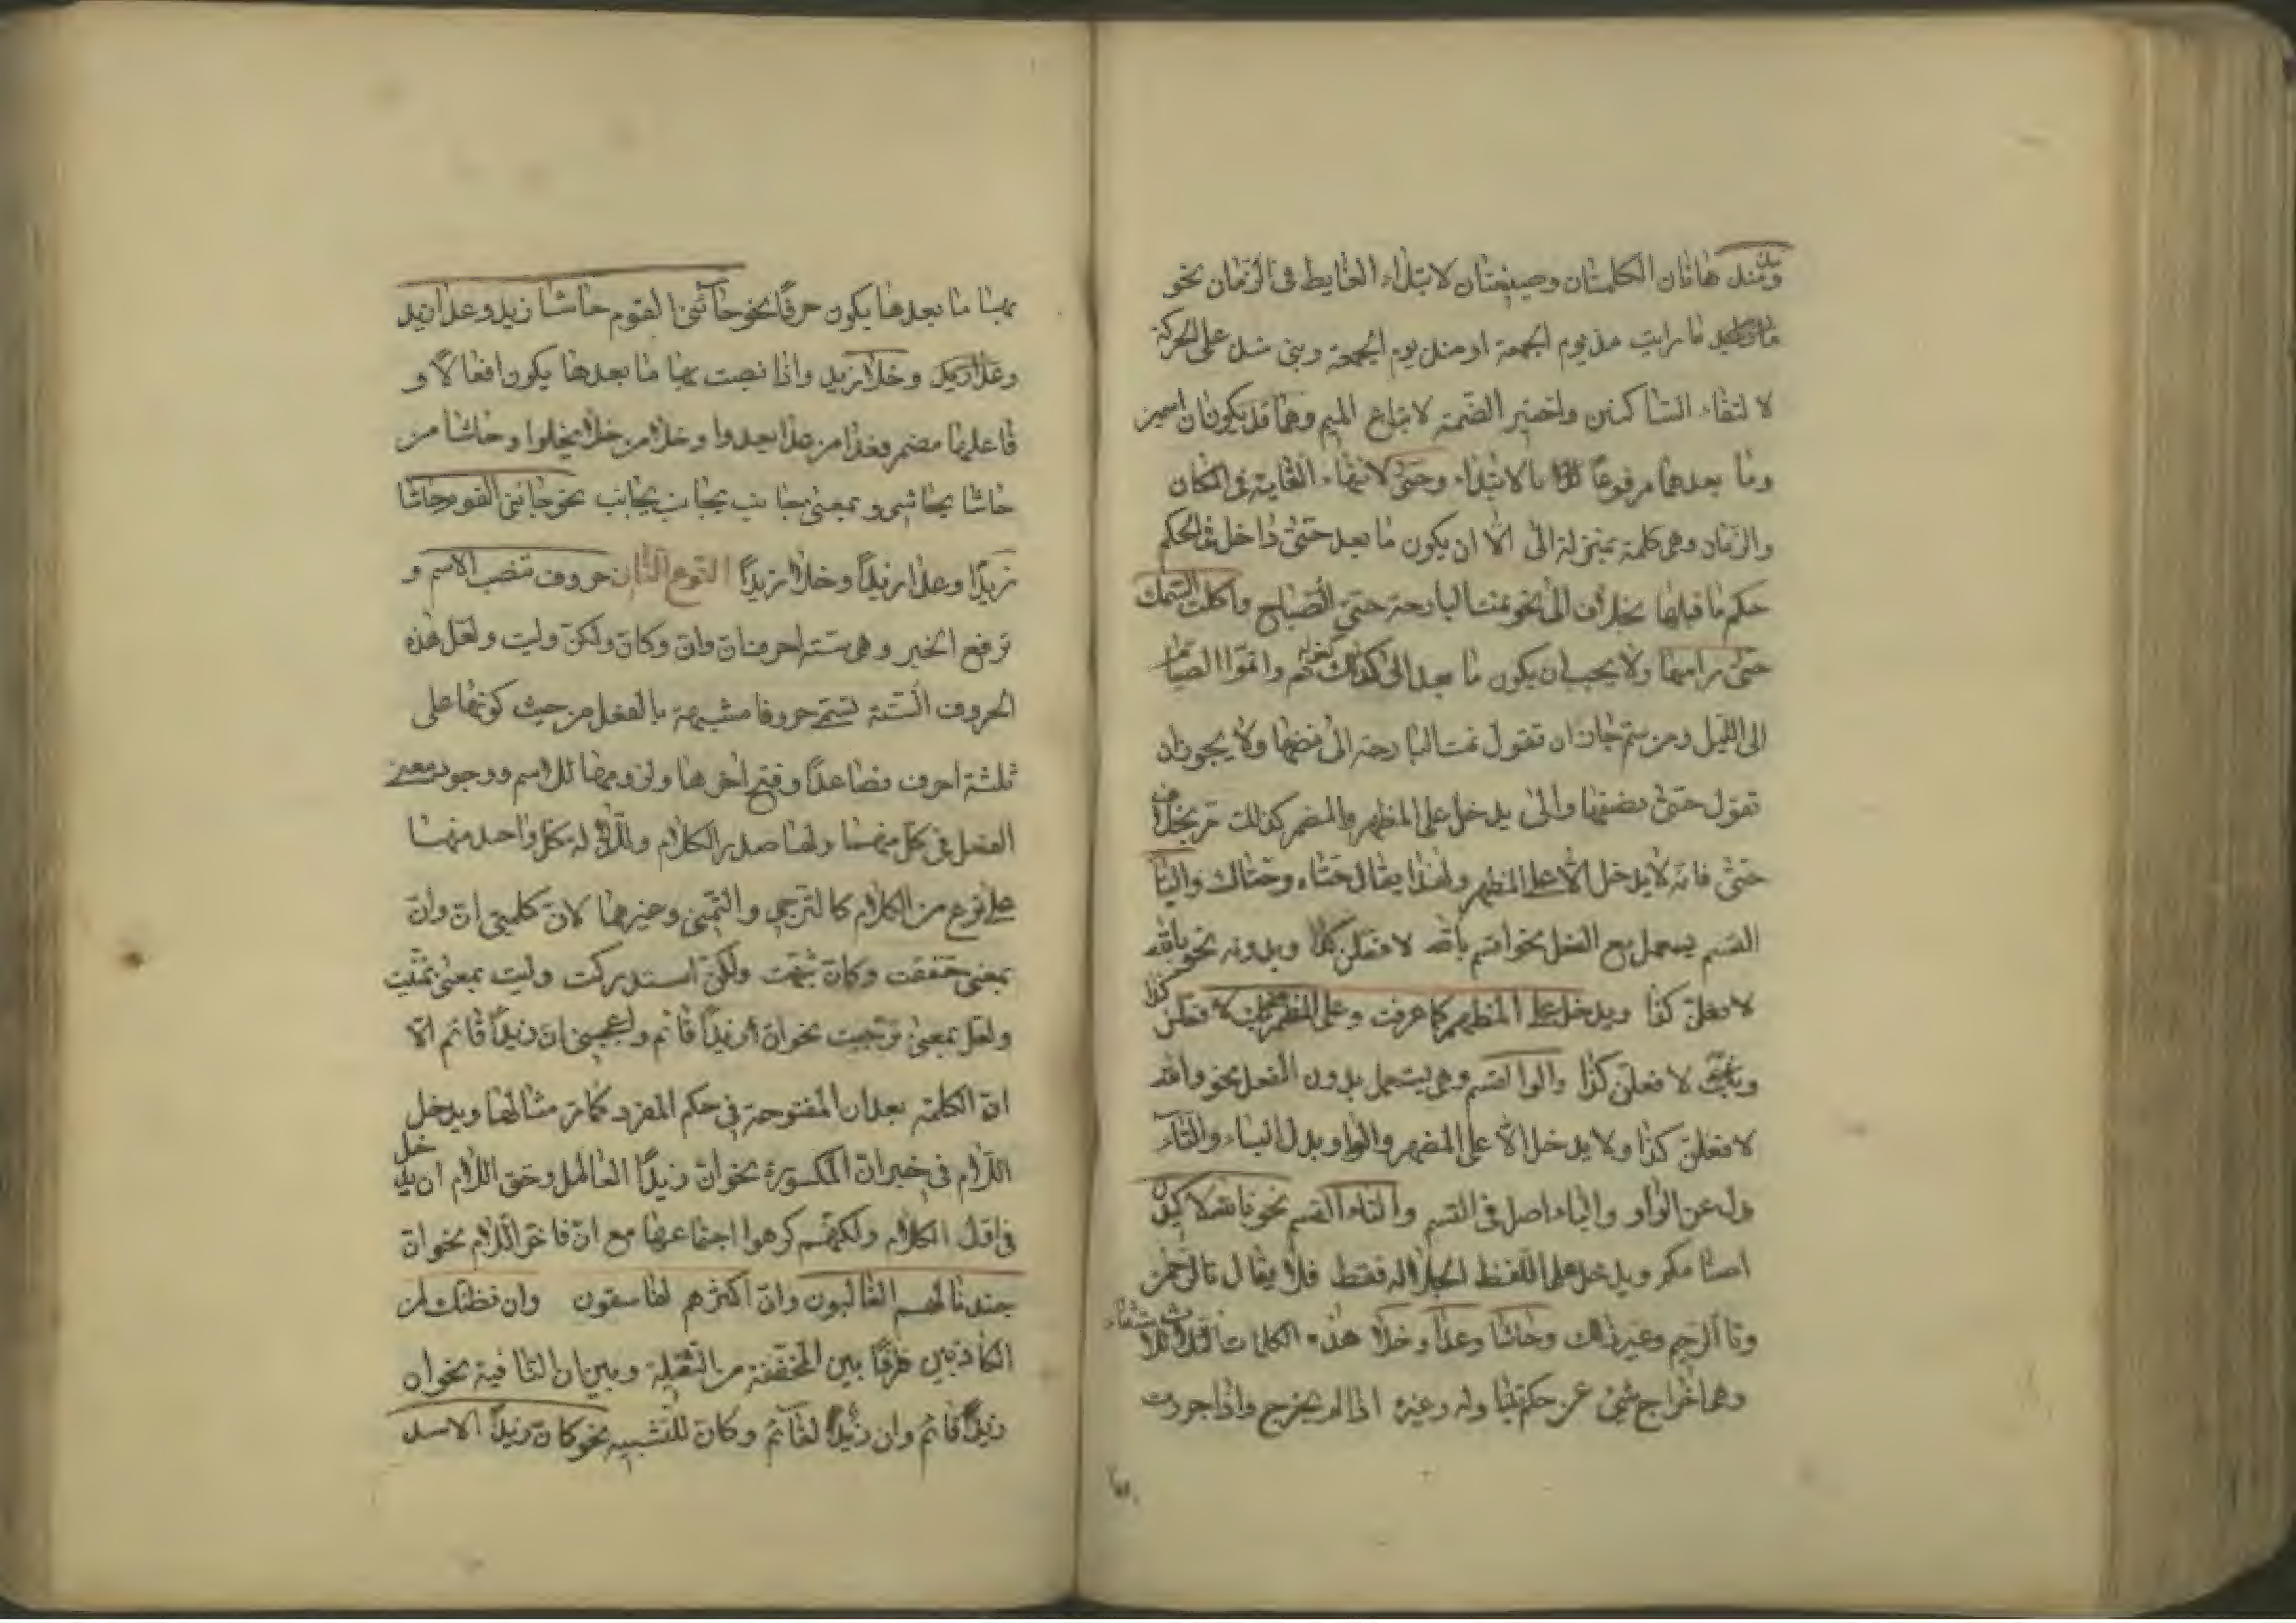 ومنذ هاتان الكلمتان وصيغتان لابتداء الغايط فى الزمان نحو
ما رايت مذ يوم الجمعة او منذ يوم الجمعة وبنى منذ على الحركة
لا لتقاء الساكنين واختير الضمة لاتباع الميم وهما قد يكونان اسمين
وما بعدهما مرفوعاً بالابتداء وحتى لانتهاء الغاية فى المكان
والزمان وهى كلمة بمنزلة الى الا ان يكون ما بعد حتى داخل فى الحكم
حكم ما قبلها بخلاف الى نحو نمت البارحة حتى الصباح واكلت السمك
حتى راسها ولا يجب ان يكون ما بعد الى كذلك واتموا الصيام
الى الليل ومن ثم جاز ان تقول نمت البارحة الى نصفها ولا يجوز ان
تقول حتى نصفها والى يدخل على المظهر والمضمر كذلك بخلاف
حتى فانه لا يدخل الا على المظهر ولهذا يقال حتاه وحتاك والباء
القسم يستعمل مع الفعل نحو اقسم بالله لافعلن كذا وبدونه نحو بالله
لافعلن كذا ويدخل على المظهر كما عرفت وعلى المضمر لافعلن كذا
لافعلن كذا والوا القسم وهى يستعمل بدون الفعل نحو والله
لافعلن كذا ولا يدخل الا على المظهر والواو بدل الباء والتاء
بدل عن الواو والباء اصل فى القسم والتاء القسم نحو تالله لاكيدن
اصنامكم ويدخل على اللفظ الجلاله فقط فلا يقال تالرحمن
وتا الرحيم وغير ذلك وحاشا وعدا وخلا هذه الكلمات
وهما اخراج شئ عن حكم وغيره اذا لم يخرج واذا جررت
بها ما بعدها يكون حرفاً نحو جائنى القوم حاشا زيد وعدا زيد
وعدا زيد وخلا زيد واذا نصبت بها ما بعدها يكون افعالاً و
فاعلها مضمر فعدا من عدا يعدوا وخلا من خلا يخلوا وحاشا من
حاشا يحاشى وبمعنى جانب يجانب نحو جائنى القوم حاشا
زيداً وعدا زيداً وخلا زيداً النوع الثانى حروف تنصب الاسم و
ترفع الخبر وهى ستة احرف ان وان وكان ولكن وليت ولعل هذه
الحروف الستة تسمى حروفا مشبهة بالفعل من حيث كونها على
ثلثة احرف فصاعداً وفتح اخرها ولزومها للاسم ووجود معنى
الفعل فى كل منها ولها صدر الكلام كل واحد منها
على نوع من الكلام كالترجى والتمنى وغيرهما لان كلمتى ان وان
بمعنى حققت وكان شبهت ولكن استدركت وليت بمعنى تمنيت
ولعل بمعنى ترجيت نحو ان زيداً قائم واعجبنى ان زيداً قائم الا
ان الكلمة بعد ان المفتوحة فى حكم المفرد كما مر مثالها ويدخل
اللام فى خبر ان المكسورة نحو ان زيداً العالم وحق اللام ان يدخل
فى اول الكلام ولكنهم كرهوا اجتماعها مع ان فاخر اللام نحو ان
جندنا لهم الغالبون وان اكثرهم لفاسقون وان نظنك لمن
الكاذبين فرقاً بين المخففة من الثقيلة وبين ان النافية نحو ان
زيداً قائم وان زيداً لقائم وكان للتشبيه نحو كان زيداً الاسد